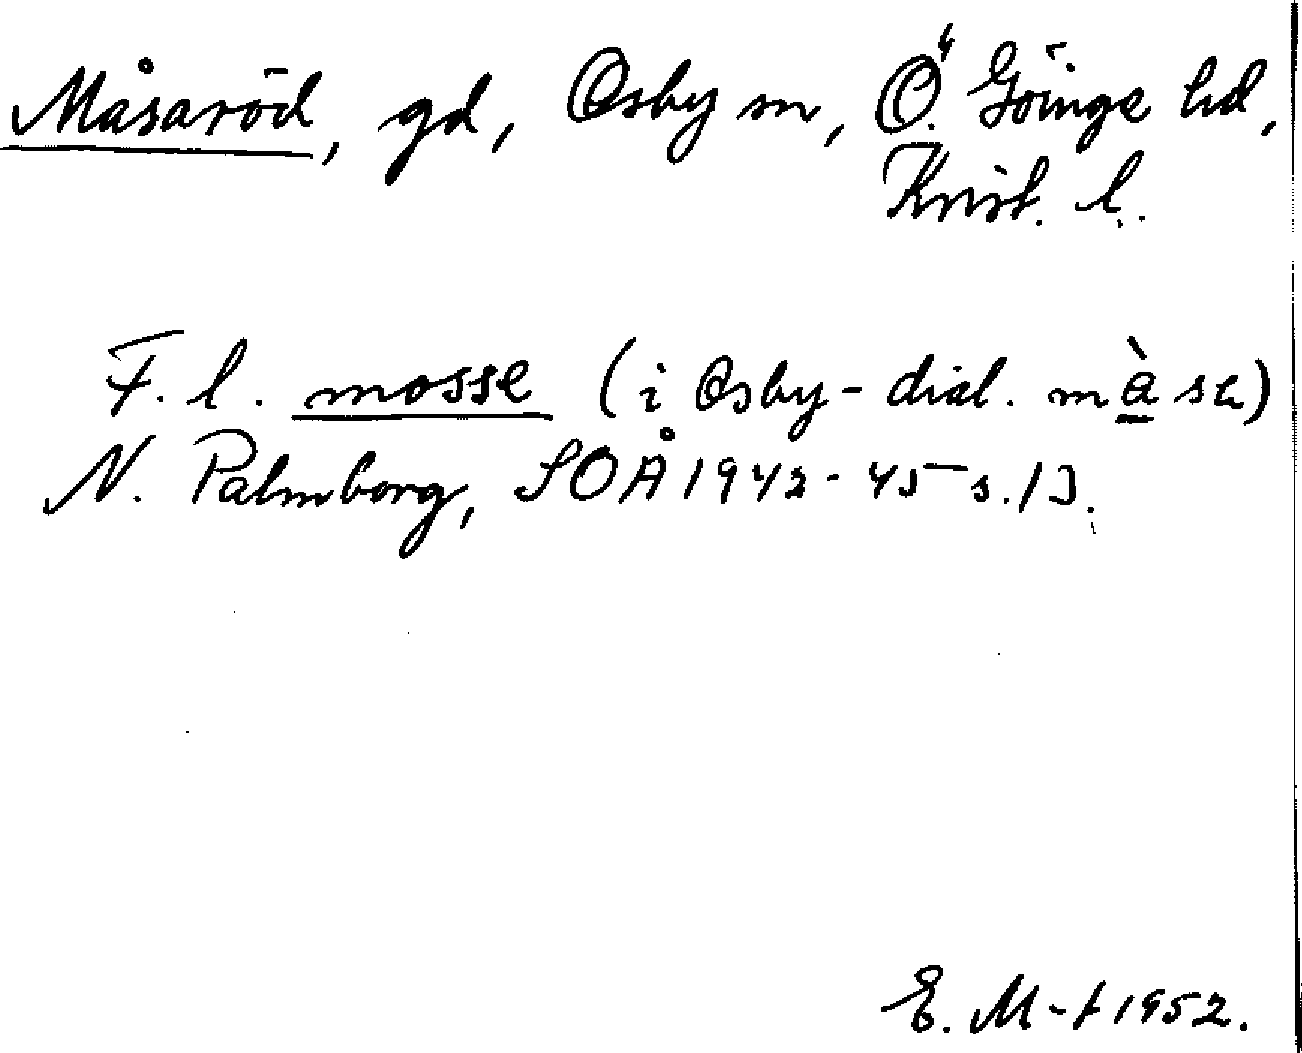 Måsaröd, gd, Osby sn, Ö. Göinge hd,
Krist. l.
F. l. mosse (i Osby-dial. màsa)
N. Palmborg, SOÅ 1942-45 s. 13.
E. M-t 1952.